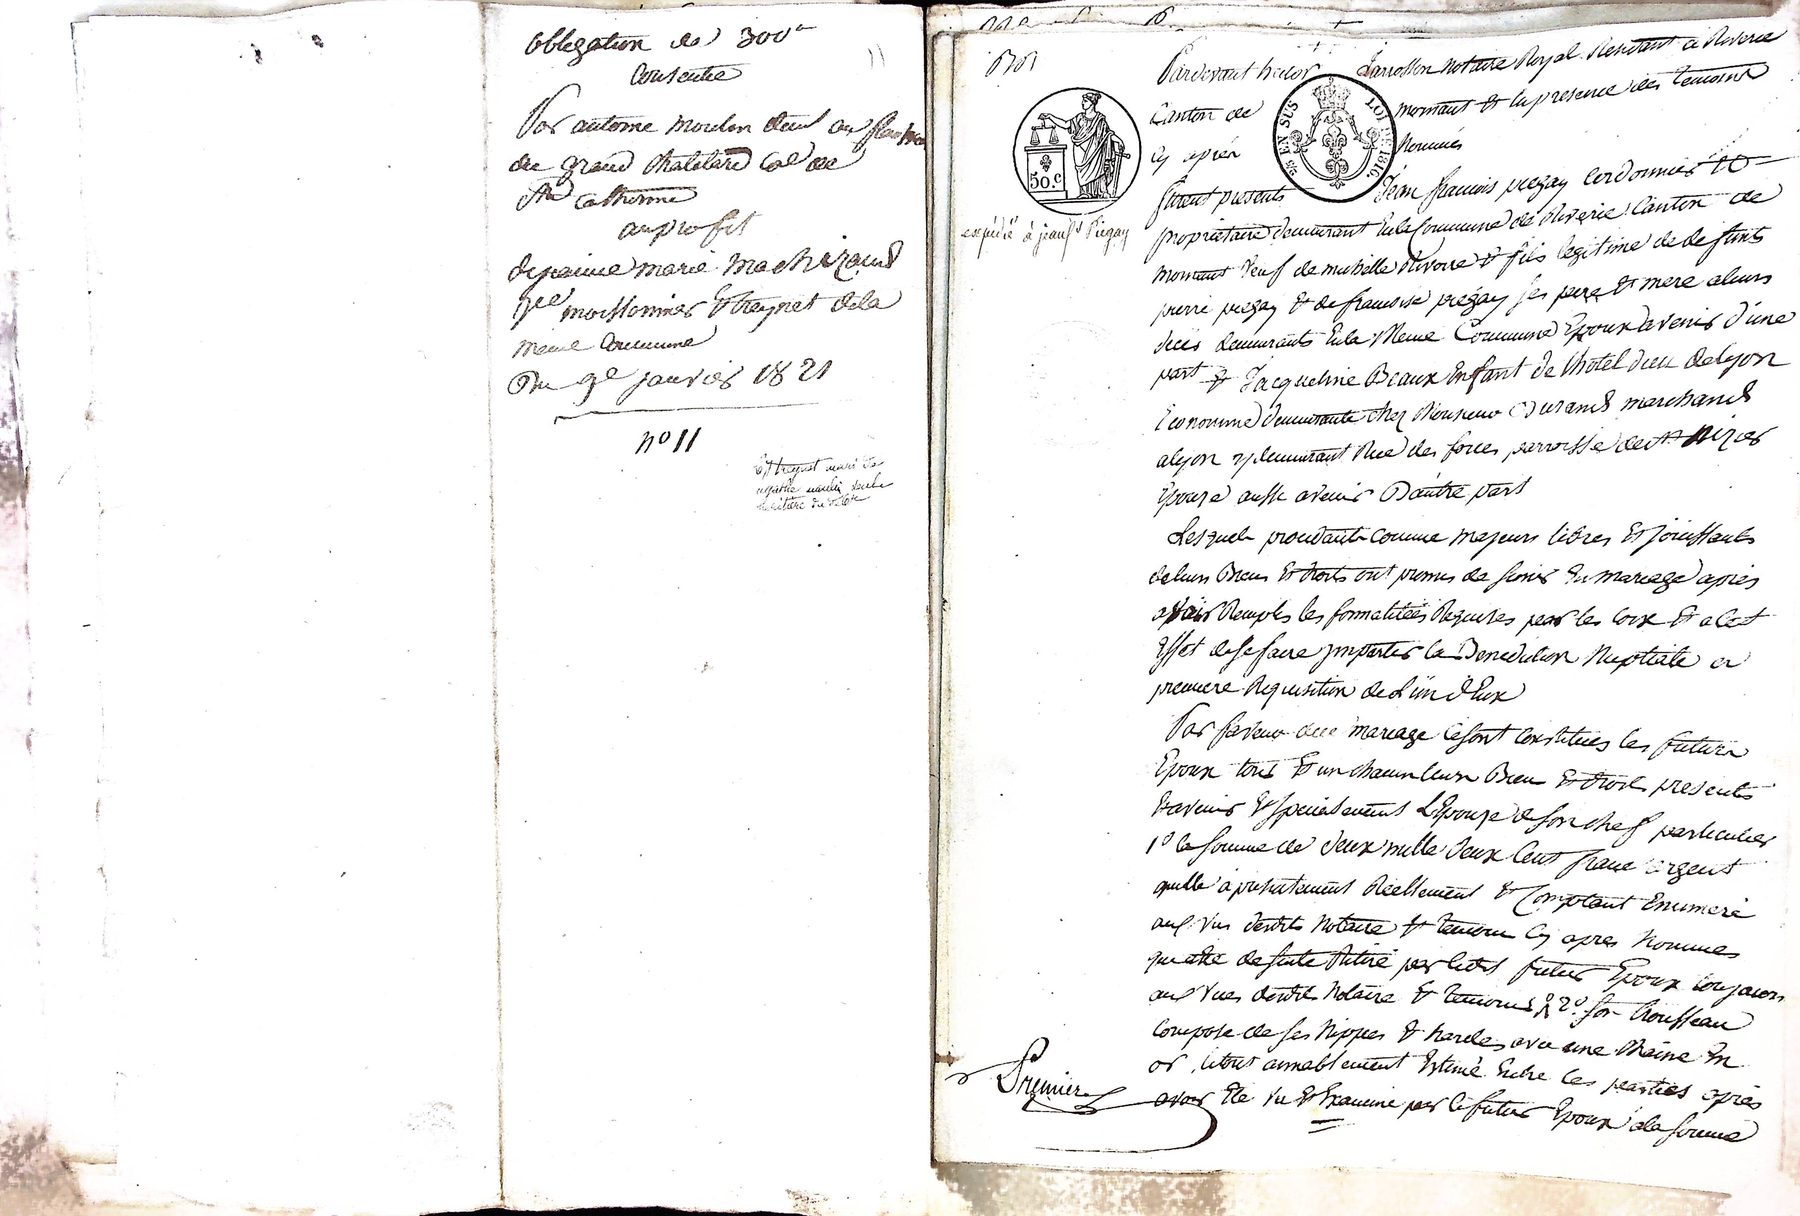 obligation de 300 
Consentie
Par antoine moulin 
du grand 
Ste Catherine
au profit
de jeanne marie 
moissonnier & treynet de la
meme Commune
Du 9e janvier 1821
no 11
Pardevant hector notaire Royal Résidant à Riverie
Canton de mornant & En presence des temoins
cy après Nommés
50.c
25 EN SUS LOI DE 1816.
furent presents Jean francois piegay Cordonnier &
expédié à jean fs Piegay
propriétaire demeurant En la Commune de Riverie Canton de
mornant veuf de Rivoire & fils legitime de defunts
pierre piegay & de francoise piegay ses pere & mere a leurs
décès demeurants En la Meme Commune Epoux avenir d'une
part & Jacqueline Beaux Enfant de l'hôtel dieu de Lyon
Econome demeurante chez Monsieur Durand marchand
a Lyon y demeurant Rue des forces parroisse de st Nizier
Epouse aussi avenir D'autre part
Lesquels procedants Comme Majeurs libres & jouissants
de leurs Biens & droits ont promis de s'unir En mariage après
avoir Remplis les formalitées Requises par les Loix & a cet
Effet de se faire impartir la Benediction Nuptiale a
premiere Requisition de L'un d'Eux
Par faveur de ce mariage se sont Constitués les futurs
Epoux tous & un chacun leurs Biens & droits presents
& avenir & specialement L'Epouse de son chef particulier
1o la somme de deux mille deux Cent francs argent
qu'elle à presentement Réellement & Comptant Enumeré
aux vus desdits Notaire & temoins Cy apres Nommés
qui a été de suite Retiré par ledit futur Epoux toujours
aux vues desdits Notaire & temoins 2o son trousseau
composé de ses Nippes & hardes avec une Chaine En
or, le tout amablement Estimé Entre les parties après
avoir Eté vu & Examiné par le futur Epoux à la somme
Premier